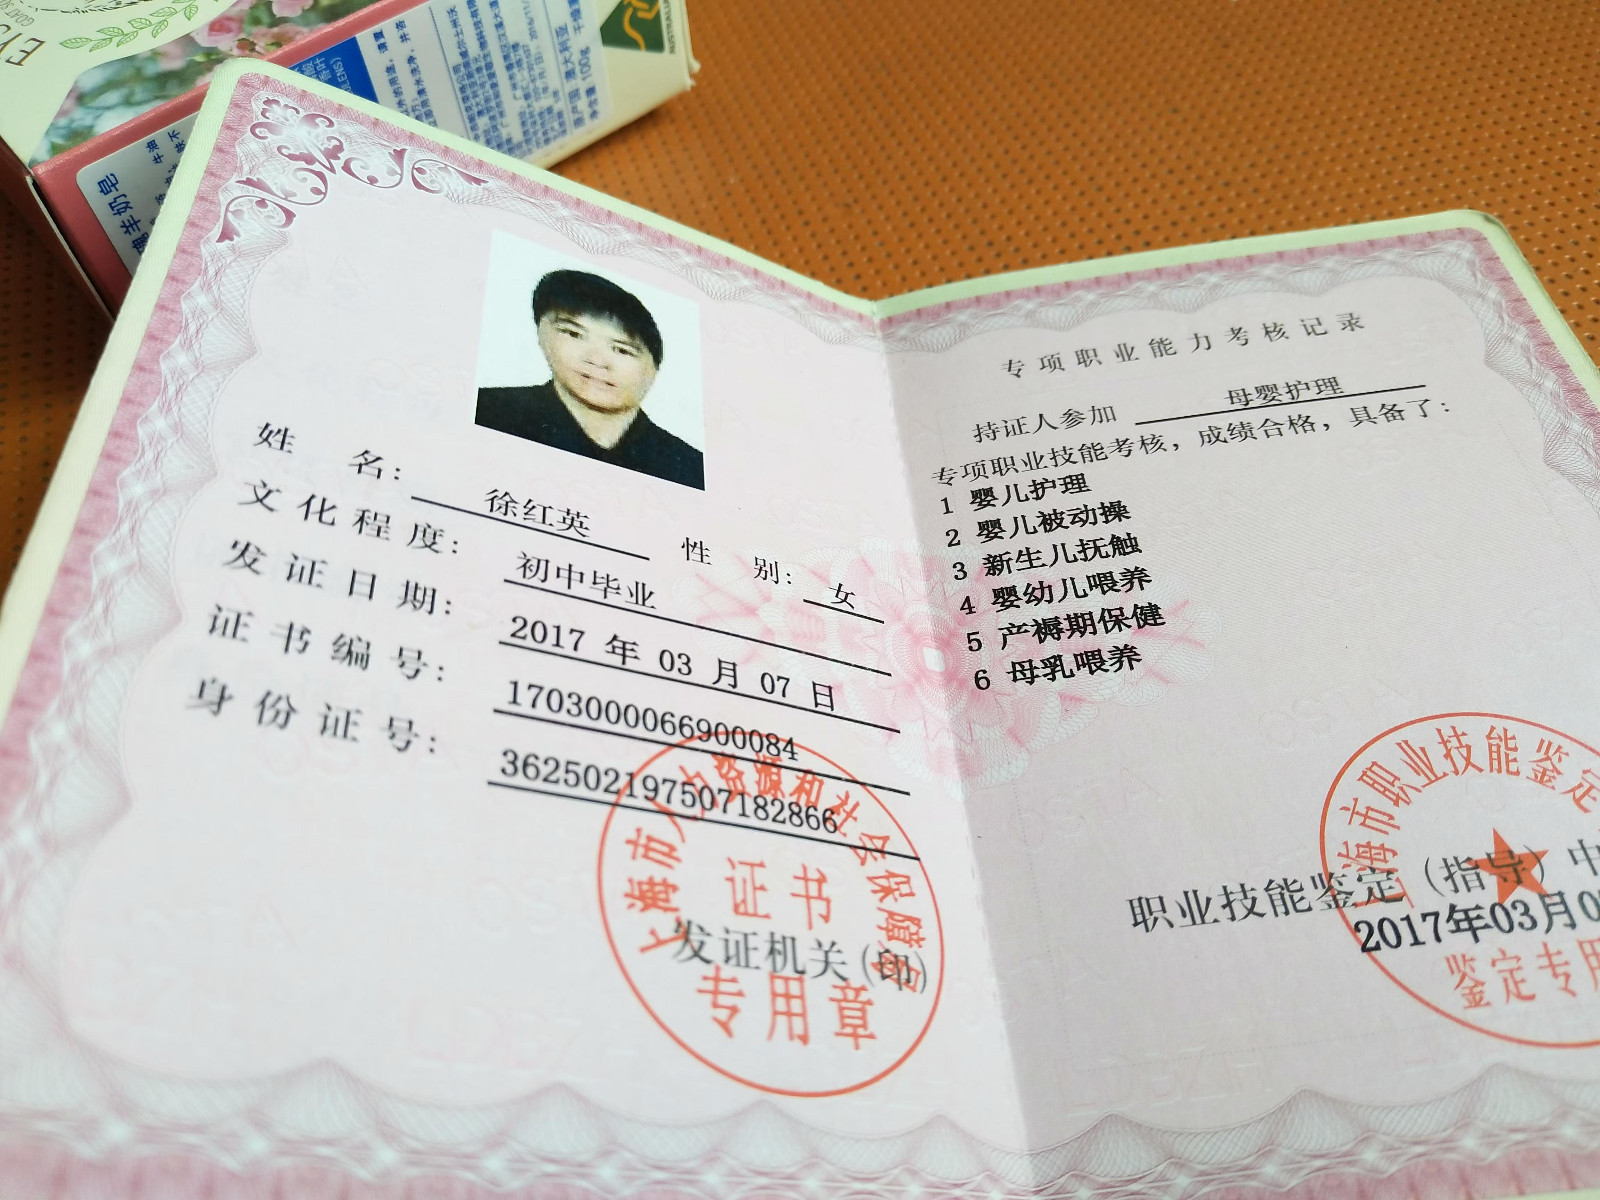 羊奶皂
原产国：澳大利亚
净含量：100g
AUSTRALIA
姓 名： 徐红英 性 别： 女
文化程度： 初中毕业
发证日期： 2017 年 03 月 07 日
证书编号： 1703000066900084
身份证号： 362502197507182866
上海市人力资源和社会保障局
证书
专用章
发证机关(印)
专项职业能力考核记录
持证人参加 母婴护理
专项职业技能考核，成绩合格，具备了：
1 婴儿护理
2 婴儿被动操
3 新生儿抚触
4 婴幼儿喂养
5 产褥期保健
6 母乳喂养
上海市职业技能鉴定
职业技能鉴定（指导）中
2017年03月0
鉴定专用